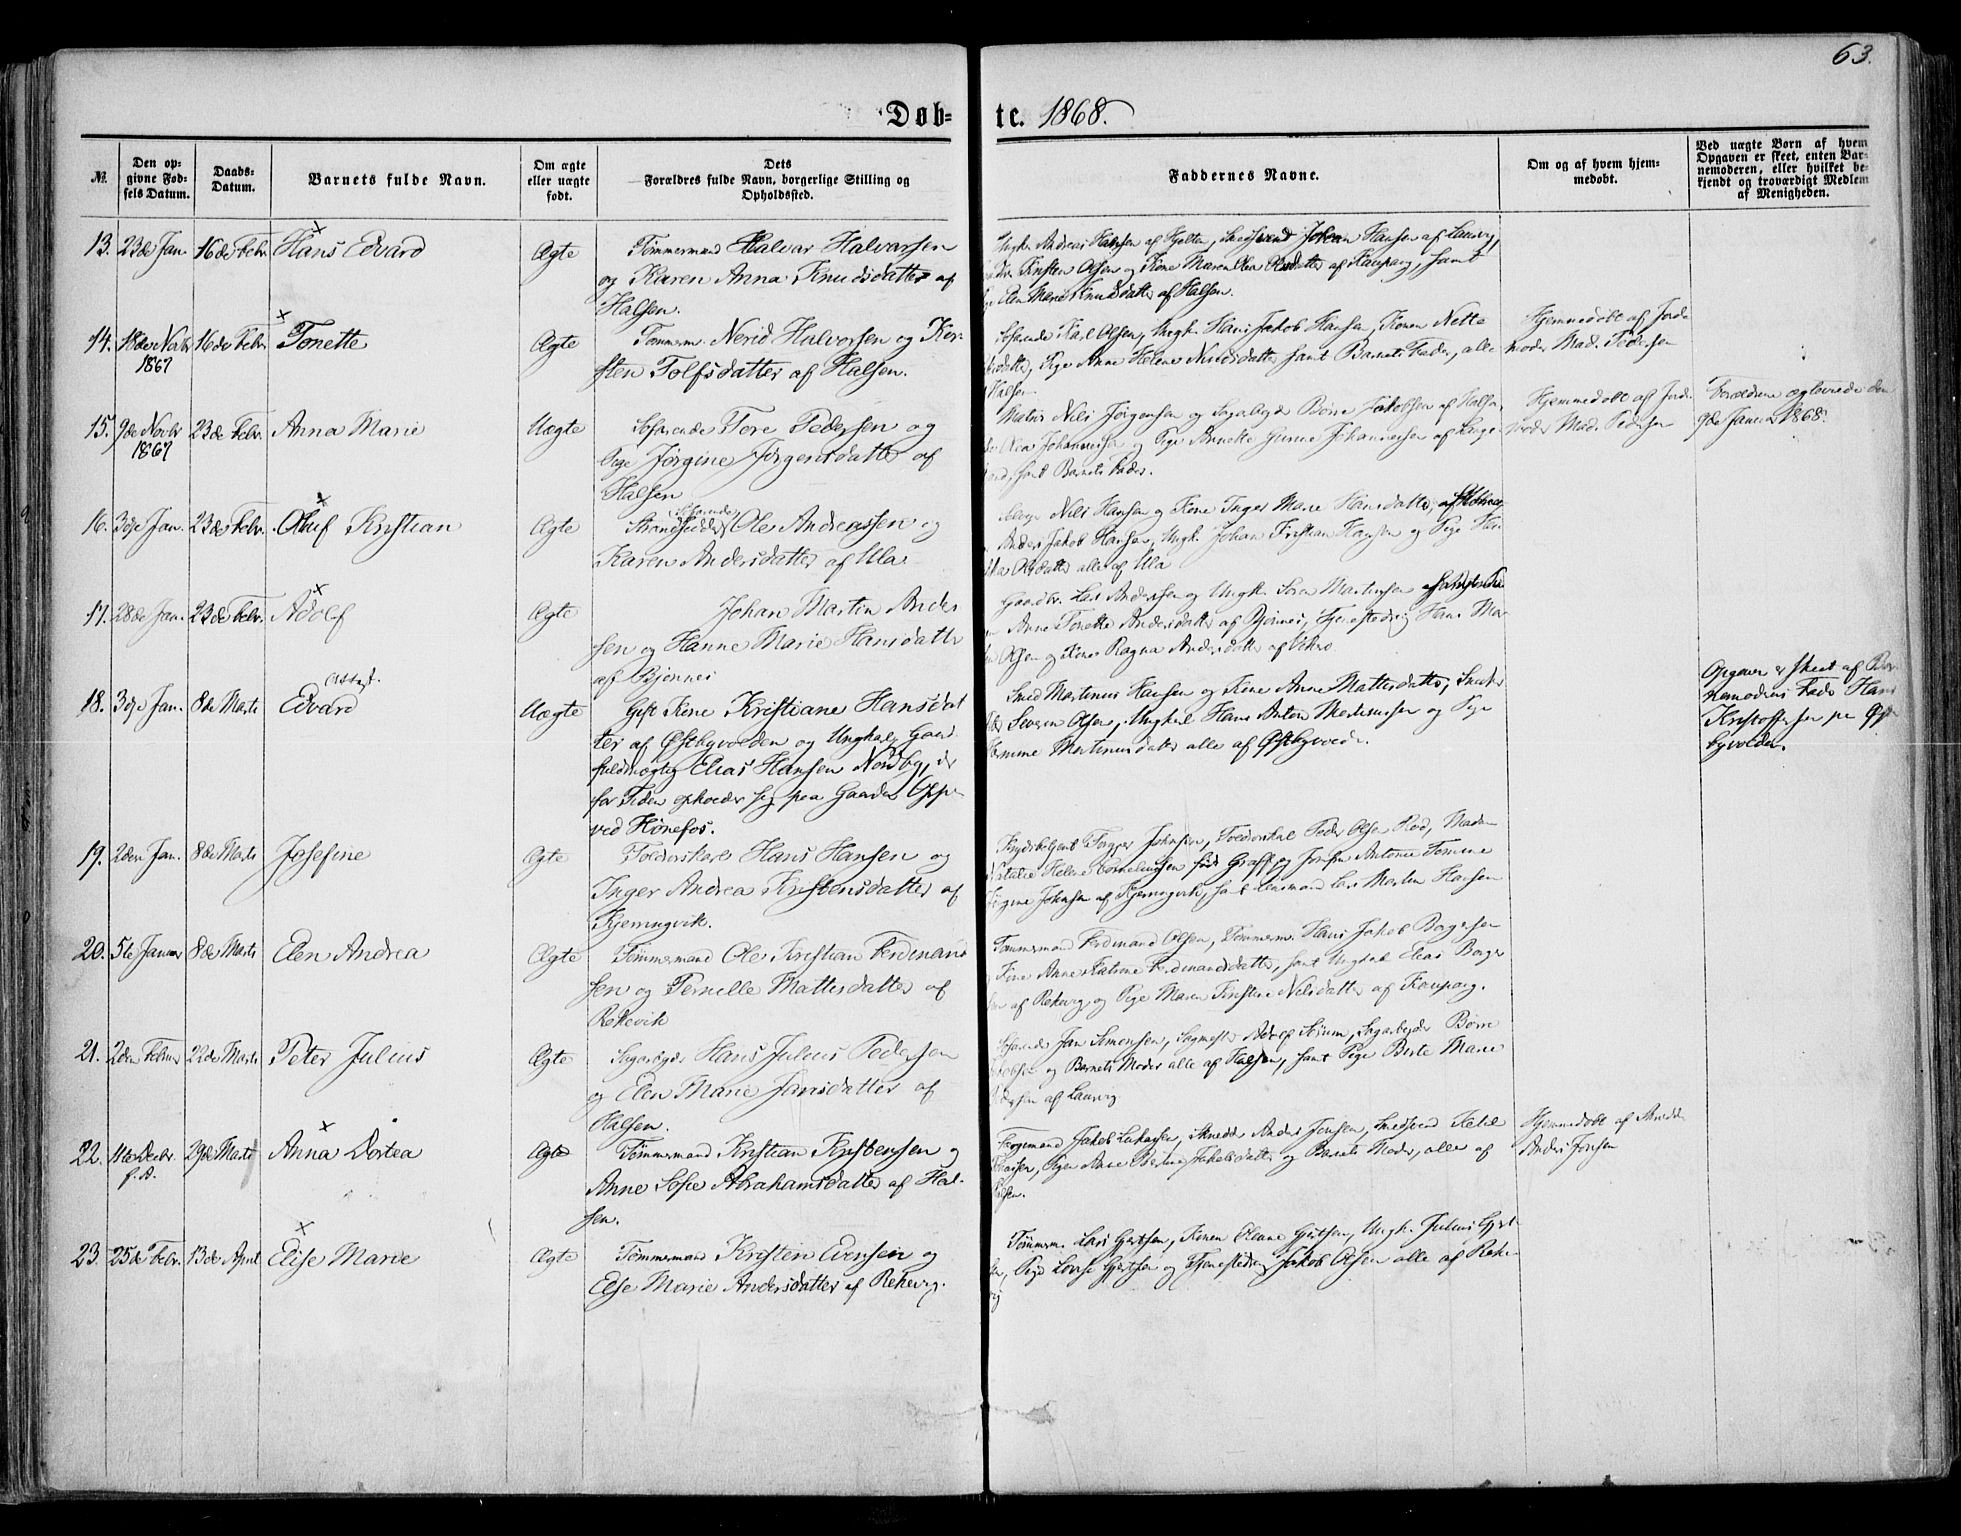 63.
Døb=
te. 1868.
№.
Den op-
givne Fød-
sels Datum.
Daabs-
Datum.
Barnets fulde Navn.
Om ægte
eller uægte
født.
Dets
Forældres fulde Navn, borgerlige Stilling og
Opholdssted.
Faddernes Navne.
Om og af hvem hjem-
medøbt.
Ved uægte Børn af hvem
Opgaven er skeet, enten Bar-
nemoderen, eller hvilket be-
kjendt og troværdigt Medlem
af Menigheden.
13. 23de Jan. 16de Febr. Hans Edvard Ægte Tømmermand Halvar Halvarsen
og Karen Anna Knudsdatter af
Halsen.
Ungk. Andreas Hansen af Hjelten, Smedsvend Johan Hansen af Laurvig,
Kristen Olsen og Kone Maren Olea Olsdatter af Kaupang, samt
Elen Marie Knudsdatter af Halsen.
14. 18de Novbr 16de Febr. Tonette Ægte Tømmerm. Nerid Halvorsen og Ker-
1867
sten Tolfsdatter af Halsen.
Søfarende Karl Olsen, Ungk. Hans Jakob Hansen, Konen Nette
Pige Anne Helene Nilsdatter samt Barnets Fader, alle
Halsen.
Hjemmedøbt af Jorde
moder Mad. Pedersen
15. 9de Novbr 23de Febr. Anna Marie Uægte Søfarende Tore Pedersen og
1867
Pige Jørgine Jørgensdatter af
Halsen
Matros Nils Jørgensen og Sagarbejder Børre Jakobsen af Halsen,
Johannesen og Pige Annette Gurine Johannesen af Lange
samt Barnets Fader.
Hjemmedøbt af Jorde
moder Mad. Pedersen
Forældrene ægteviede den
9de Januar 1868.
16. 3dje Jan. 23de Febr. Oluf Kristian Ægte Strandsidder Ole Andreassen og
Søfarende
Karen Andersdatter af Ula
Nils Hansen og Kone Inger Marie Hansdatter,
Anders Jakob Hansen, Ungk. Johan Kristian Hansen og Pige Han
Olsdatter alle af Ula
17. 28de Jan. 23de Febr. Adolf Ægte Johan Martin Ander
sen og Hanne Marie Hansdatter
af Bjønnes
Gaardbr. Lars Andersen og Ungk. Søren Martinsen
Anne Tonette Andersdatter af Bjønnes, Tjenestedreng Hans Mar
Olsen og Kone Ragna Andersdatter af Vikro
18. 3dje Jan. 8de Marts Edvard Uægte Gift Kone Kristiane Hansdat
attest.
ter af Østbyvolden og Ungkarl, Gaard
fuldmægtig Elias Hansen Nordby, der
for Tiden opholder sig paa Gaarden
ved Hønefos.
Smed Martinus Hansen og Kone Anne Mattisdatter, Snedker
Severin Olsen, Ungkarl Hans Anton Martinussen og Pige
Martinusdatter alle af Østbyvolden.
Opgaven er skeet af Bar
nemoderens Fader Hans
Kristoffersen paa Øst
byvolden.
19. 2den Jan. 8de Marts Josefine Ægte Toldorskarl Hans Hansen og
Inger Andrea Kristensdatter af
Kjerringvik.
Krydsbetjent Torger Johnsen, Toldorskarl Peder Olsen Rød, Madam
Natalie Helene Cornelinssen født Graff og Jomfru Antonie Tomine
Jørgine Johnsen af Kjerringvik, samt Lensmand Lars Martin Hansen
20. 5te Januar 8de Marts Elen Andrea Ægte Tømmermand Ole Kristian Ferdinand
sen og Pernille Mattisdatter af
Rekevik
Tømmermand Ferdinand Olsen, Tømmerm. Hans Jakob Borgersen
Kone Anne Katrine Ferdinandsdatter, samt Ungkarl Elias Borger
sen af Rekevig og Pige Maren Kirstine Nilsdatter af Kaupang.
21. 2den Februar 22de Marts Peter Julius Ægte Sagarbejder Hans Julius Pedersen
og Elen Marie Jansdatter af
Halsen.
Søfarende Jan Simonsen, Sagmester Sørum, Sagarbejder Børre
Jakobsen og Barnets Moder alle af Halsen, samt Pige Berte Marie
Pedersen af Laurvig
22. 11te Decbr 29de Marts Anna Dortea Ægte Tømmermand Kristian Kristensen og
f. A.
Anne Sofie Abrahamsdatter af Hal-
sen.
Jakob Lukassen, Skrædder Anders Jensen, Smedsvend Ketil
Pigen Anne Bertine Jakobsdatter og Barnets Moder, alle af
Halsen.
Hjemmedøbt af Skrædder
Anders Jensen
23. 25de Febr. 13de April Elise Marie Ægte Tømmermand Kristen Evensen og
Else Marie Andersdatter af Rekevig.
Tømmerm. Lars Gjertsen, Konen Olene Gjertsen, Ungk. Julius Gjert
sen, Pige Lovise Gjertsen og Tjenestedreng Jakob Olsen alle af Reke-
vig